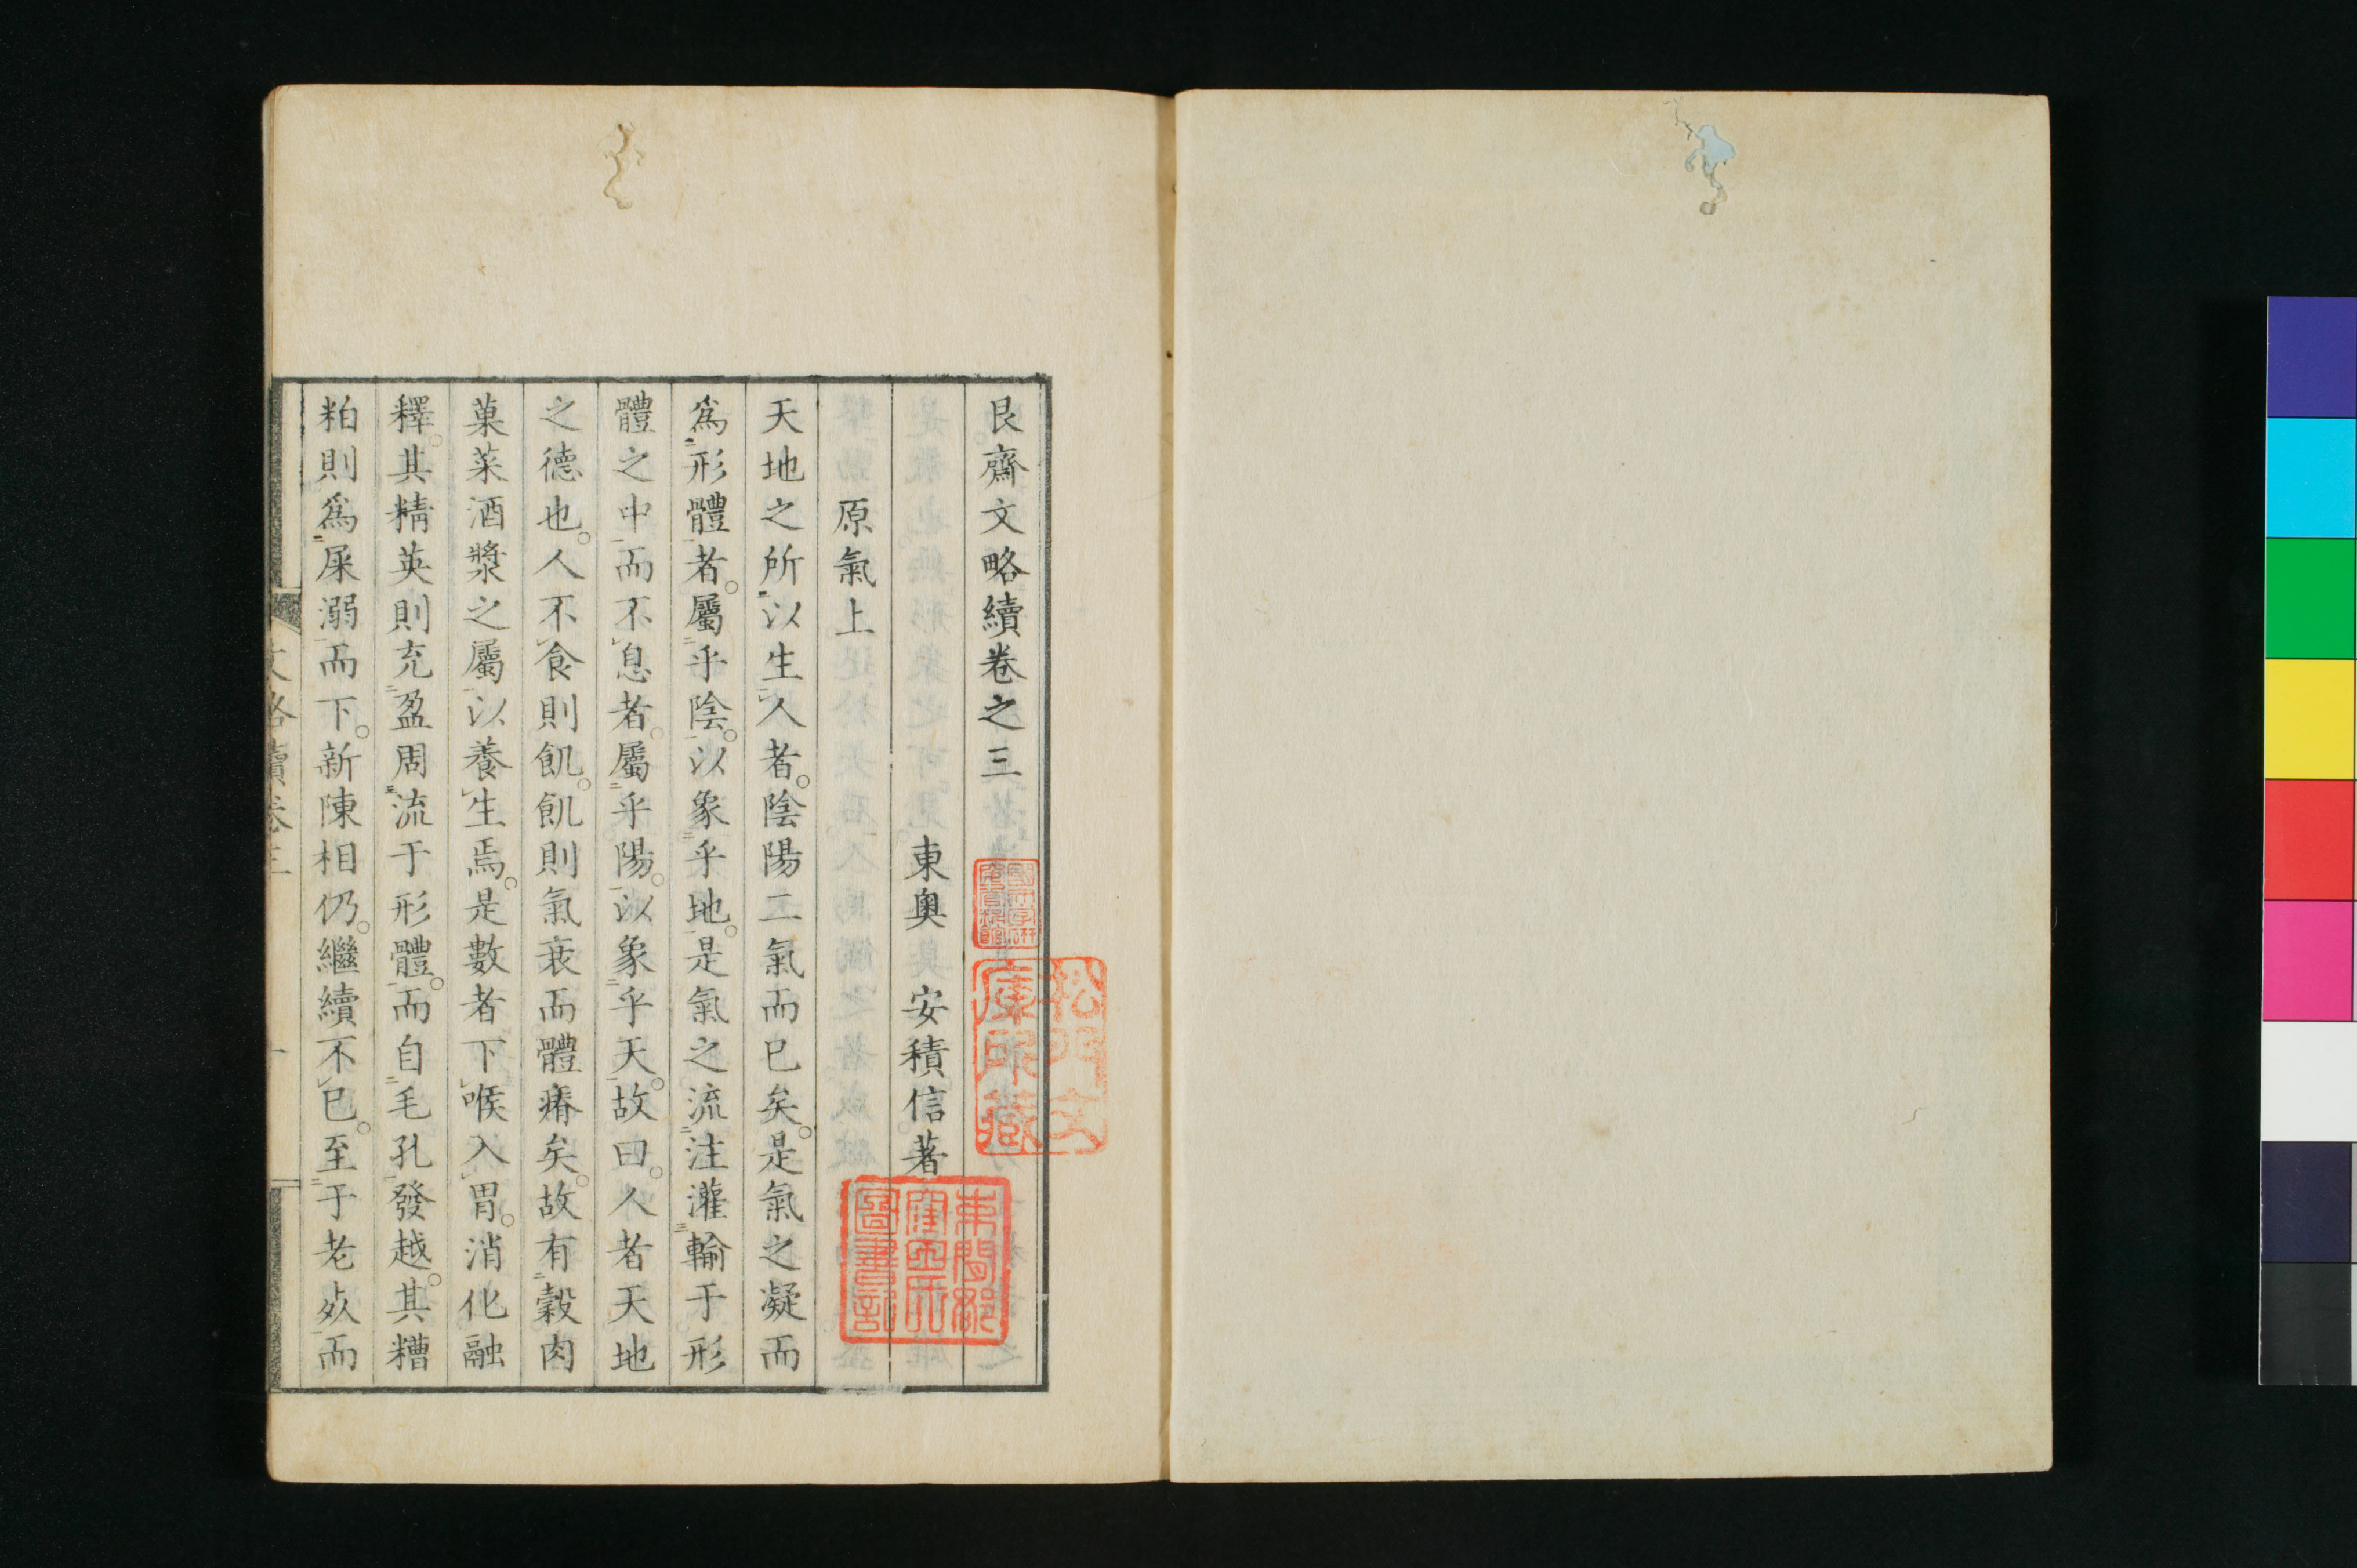 艮齋文略續卷之三
東奧　安積信著
原氣上
天地之所以生人者。陰陽二氣而已矣。是氣之凝而
爲形體者。屬乎陰。以象乎地。是氣之流注灌輸于形
體之中而不息者。屬乎陽。以象乎天。故曰。人者天地
之德也。人不食則飢。飢則氣衰而體瘠矣。故有穀肉
菓菜酒漿之屬以養生焉。是數者下喉入胃。消化融
釋。其精英則充盈周流于形體。而自毛孔發越。其糟
粕則爲屎溺而下。新陳相仍。繼續不已。至于老矣而
文略續卷三
松門文庫所藏
圖書記